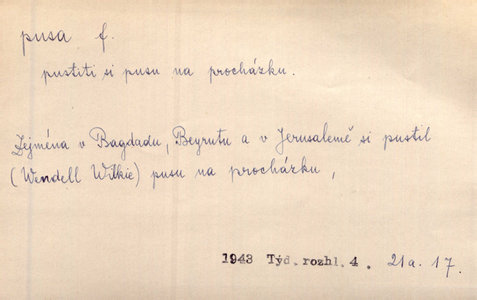 pusa f.
pustiti si pusu na procházku.
Zejména v Bagdadu, Beyrutu a v Jerusalemě si pustil
(Wendell Wilkie) pusu na procházku,
1943 Týd. rozhl. 4. 21a. 17.